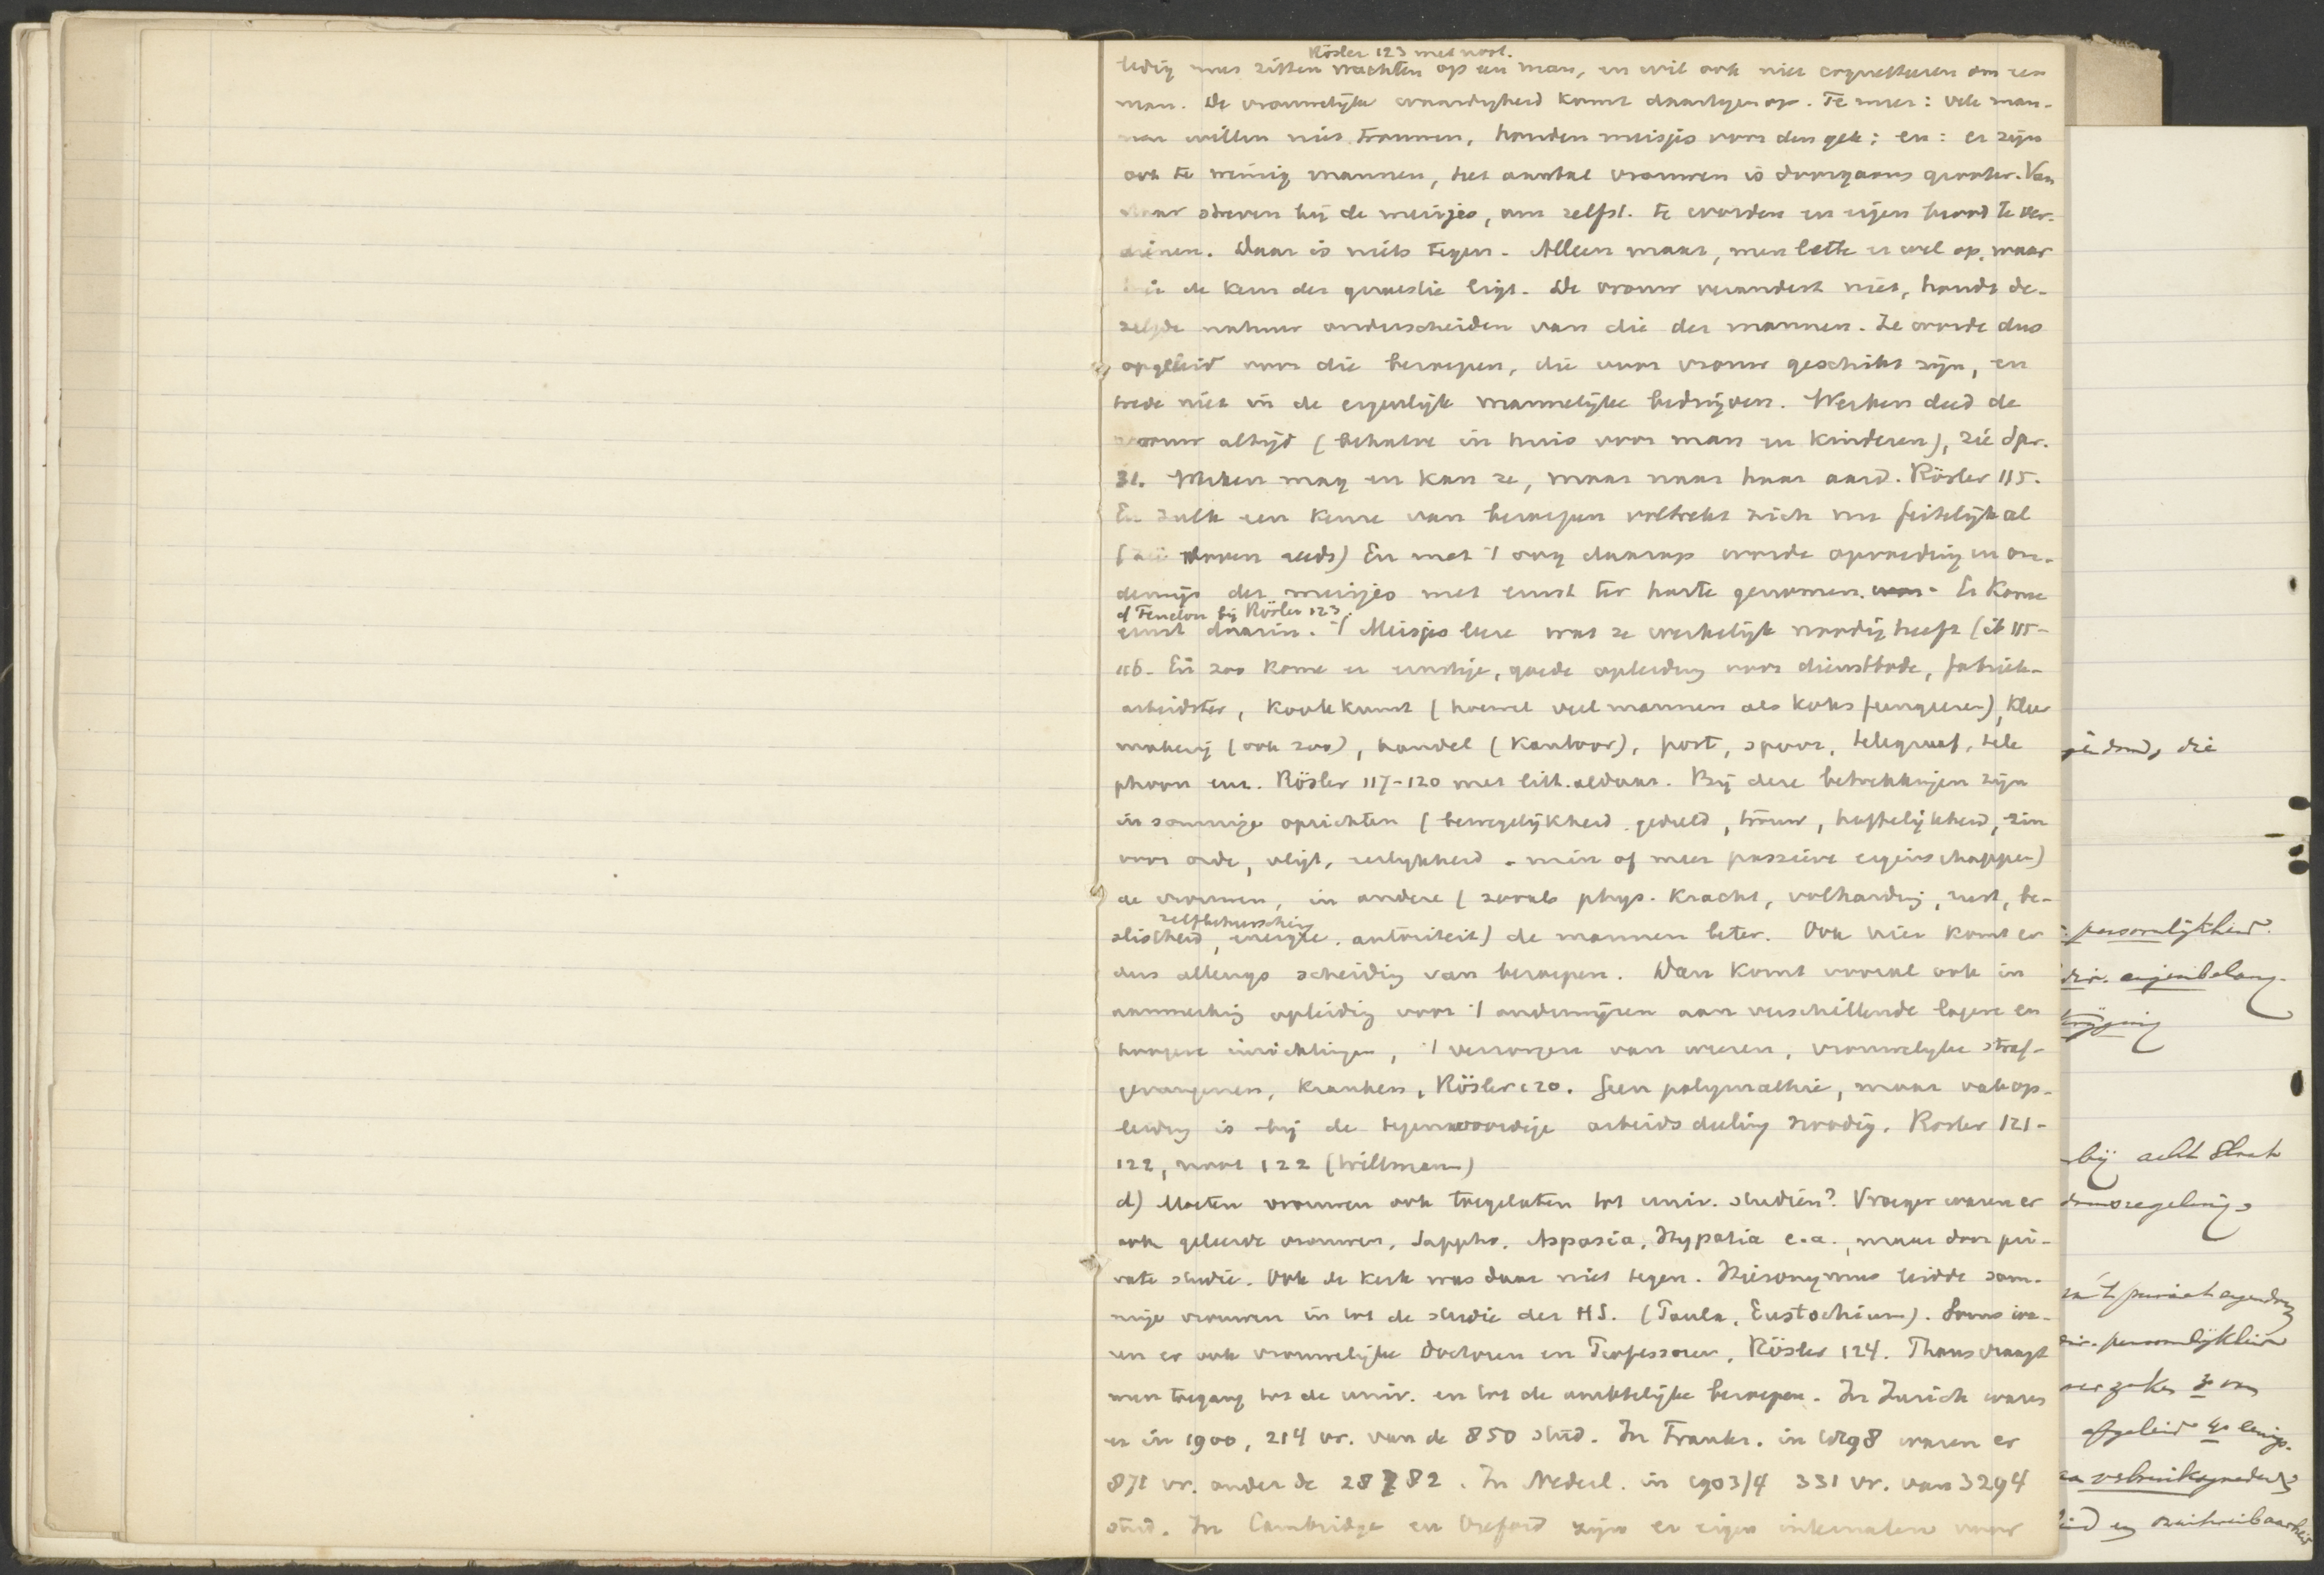 Rösler 123 met noot.
ledig moet zitten wachten op een man, en wil ook niet coquetteeren om een
man. De vrouwelijke waardigheid komt daartegen op. Te meer: vele man-
nen willen niet trouwen, houden meisjes voor den gek; en: er zijn
ook te weinig mannen, het aantal vrouwen is doorgaans grooter. Van
daar streven bij de meisjes, om zelfst. te worden en eigen brood te ver-
dienen. Daar is niets tegen. Alleen maar, men lette er wel op, waar
hier de kern der quaestie ligt. De vrouw verandert niet, houdt de-
zelfde natuur onderscheiden van die der mannen. Ze worde dus
opgeleid voor die beroepen, die voor vrouw geschikt zijn, en
trede niet in de eigenlijk mannelijke bedrijven. Werken deed de
vrouw altijd (behalve in huis voor man en kinderen), zie Spr.
31. Werken mag en kan ze, maar naar haar aard. Rösler 115.
En zulk een keuze van beroepen voltrekt zich nu feitelijk al
(zie boven reeds) En met 't oog daarop worde opvoeding en on-
derwijs der meisjes met ernst ter harte genomen. Er kome
cf Fenelon bij Rösler 123.
ernst daarin. 't Meisje leere wat ze werkelijk noodig heeft (ib 115-
116. En zoo kome er ernstige, goede opleiding voor dienstbode, fabriek-
arbeidster, kookkunst (hoewel veel mannen als koks fungeeren), kleer
makerij (ook zoo), handel (kantoor), post, spoor, telegraaf, tele
phoon enz. Rösler 117-120 met litt. aldaar. Bij deze betrekkingen zijn
in sommige opzichten (bewegelijkheid, geduld, trouw, hoffelijkheid, zin
voor orde, vlijt, eerlijkheid - min of meer passieve eigenschappen)
de vrouwen, in andere (zooals phys. kracht, volharding, rust, be-
zelfbeheersching
slistheid, energie, autoriteit) de mannen beter. Ook hier komt er
dus allengs scheiding van beroepen. Dan komt vooral ook in
aanmerking opleiding voor 't onderwijzen aan verschillende lagere en
hoogere inrichtingen, 't verzorgen van weezen, vrouwelijke straf-
gevangenen, kranken, Rösler 120. Geen polymathie, maar vakop-
leiding is bij de tegenwoordige arbeidsdeeling noodig. Rosler 121-
122, noot 122 (Willmann)
d) Moeten vrouwen ook toegelaten tot univ. studiën? Vroeger waren er
ook geleerde vrouwen, Sappho, Aspasia, Hypatia e.a., maar door pri-
vate studie. Ook de kerk was daar niet tegen. Hieronymus leidde som-
mige vrouwen in tot de studie der HS. (Paula, Eustochium). Soms wa-
ren er ook vrouwelijke Doctoren en Professoren, Rösler 124. Thans vraagt
men toegang tot de univ. en tot de ambtelijke beroepen. In Zurich waren
er in 1900, 214 vr. van de 850 stud. In Frankr. in 1898 waren er
871 vr. onder de 28782. In Nederl. in 1903/4 331 vr. van 3294
stud. In Cambridge en Oxford zijn er eigen internaten voor
die
persoonlijkheid.
eigenbelang.
bij acht
persoonlijkheid
afgeleid